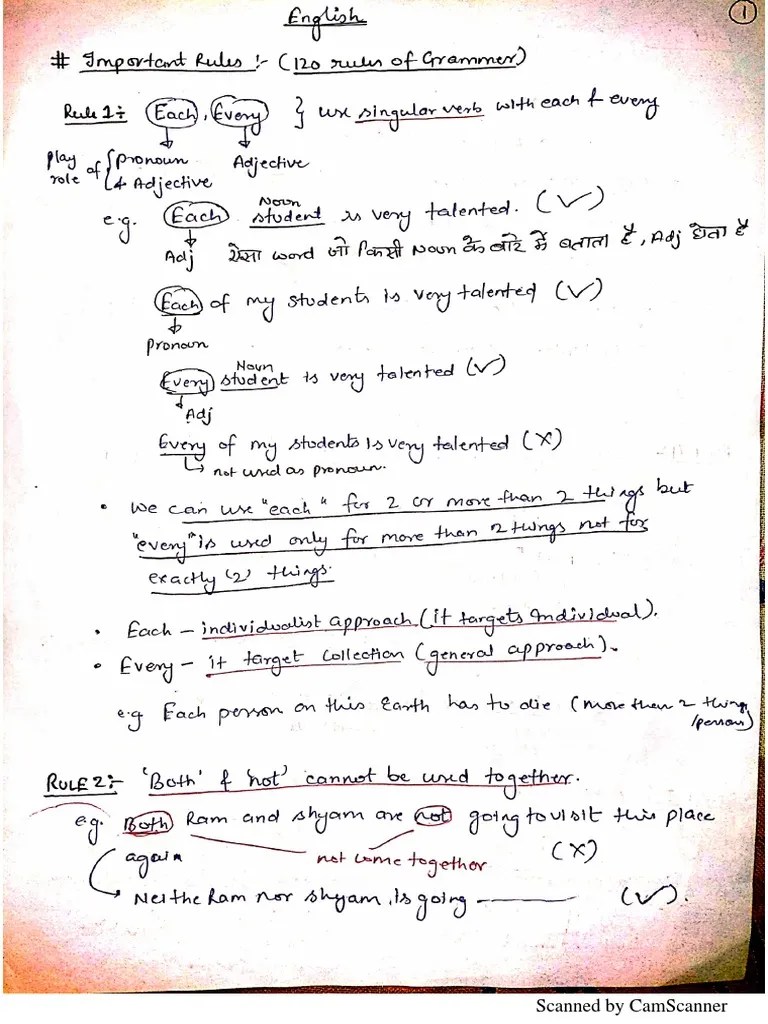 English
1
# Important Rules :- (120 rules of Grammer)
Rule 1:- Each, Every } use singular verb with each & every
Play role of { Pronoun & Adjective
Adjective
Noun
e.g. Each student is very talented. (✓)
Adj ऐसा word जो किसी Noun के बारे में बताता है, Adj होता है
Each of my students is very talented (✓)
Pronoun
Noun
Every student is very talented (✓)
Adj
Every of my students is very talented (X)
↳ not used as pronoun.
• We can use "each" for 2 or more than 2 things but
"every" is used only for more than 2 things not for
exactly (2) things.
• Each – individualist approach (it targets individual).
• Every – it target collection (general approach).
e.g Each person on this Earth has to die (more than 2 things
/person)
RULE 2:- 'Both' & 'not' cannot be used together.
e.g. Both Ram and Shyam are not going to visit this place
again not come together (X)
Neither Ram nor Shyam, is going ——— (✓).
Scanned by CamScanner